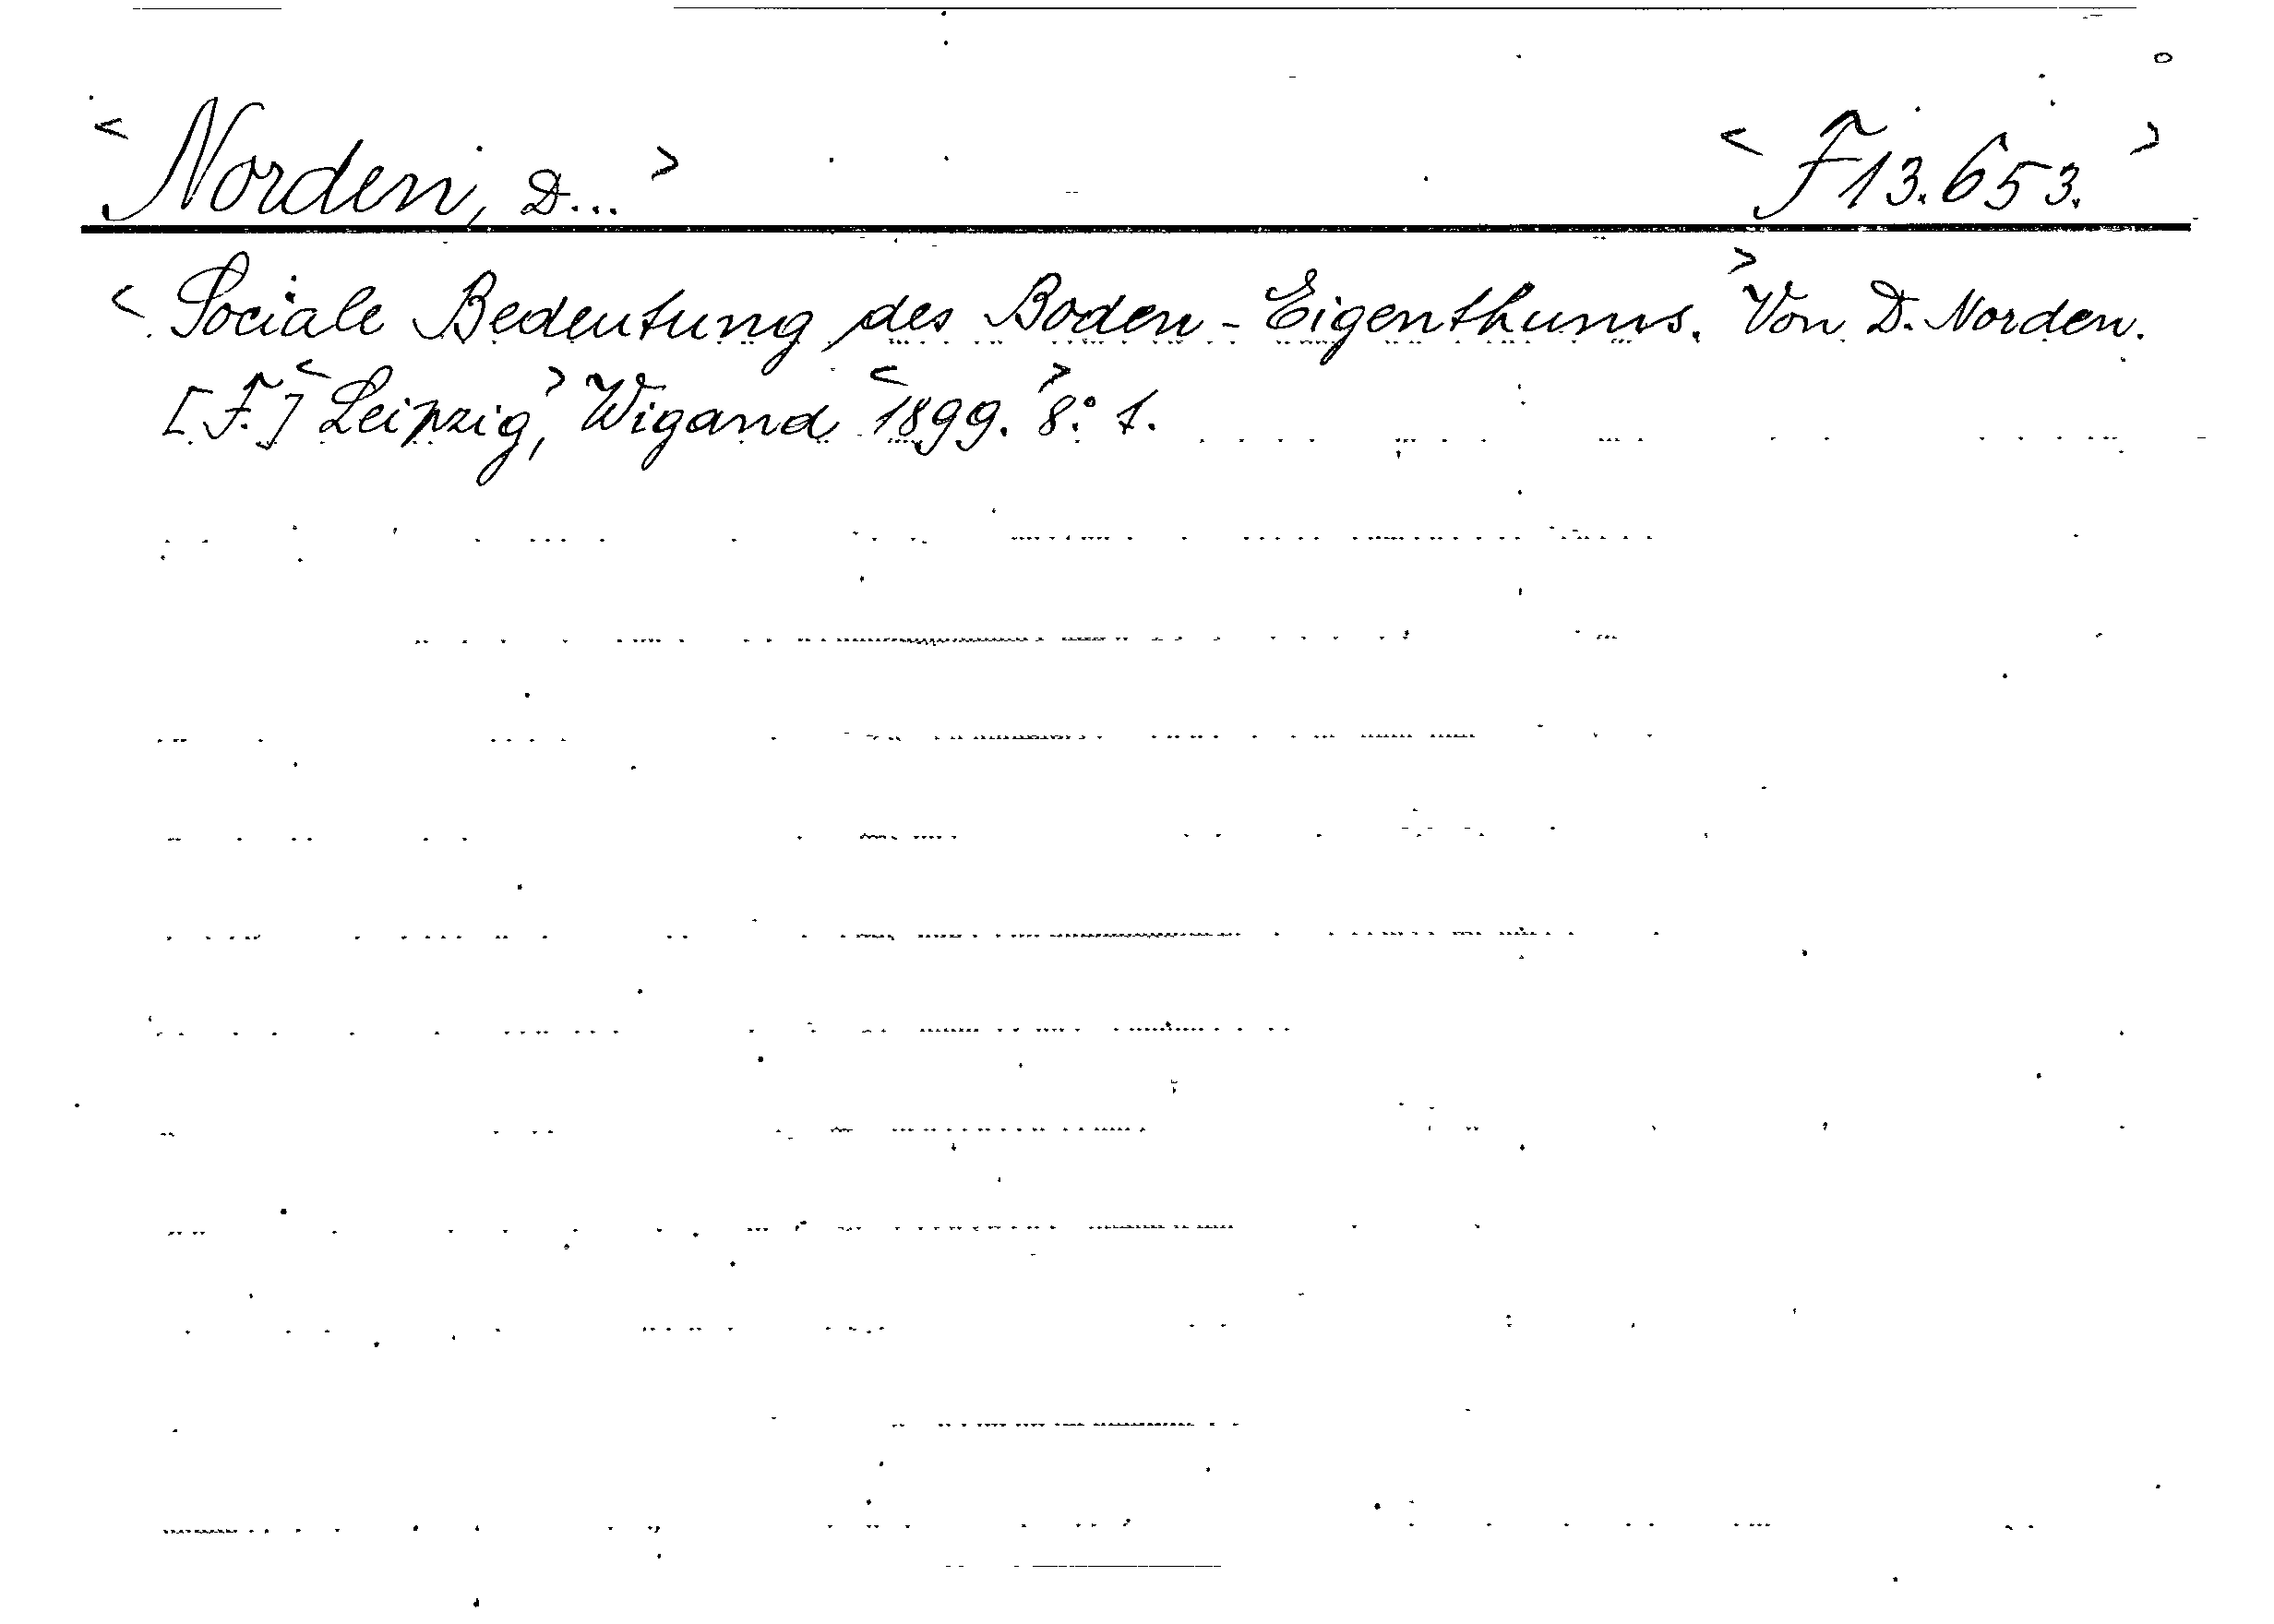 <Norden, D...> <F13.653.>
<Sociale Bedeutung des Boden-Eigenthums.> Von D. Norden.
[F.] <Leipzig,> Wigand <1899.> 8.° 1.